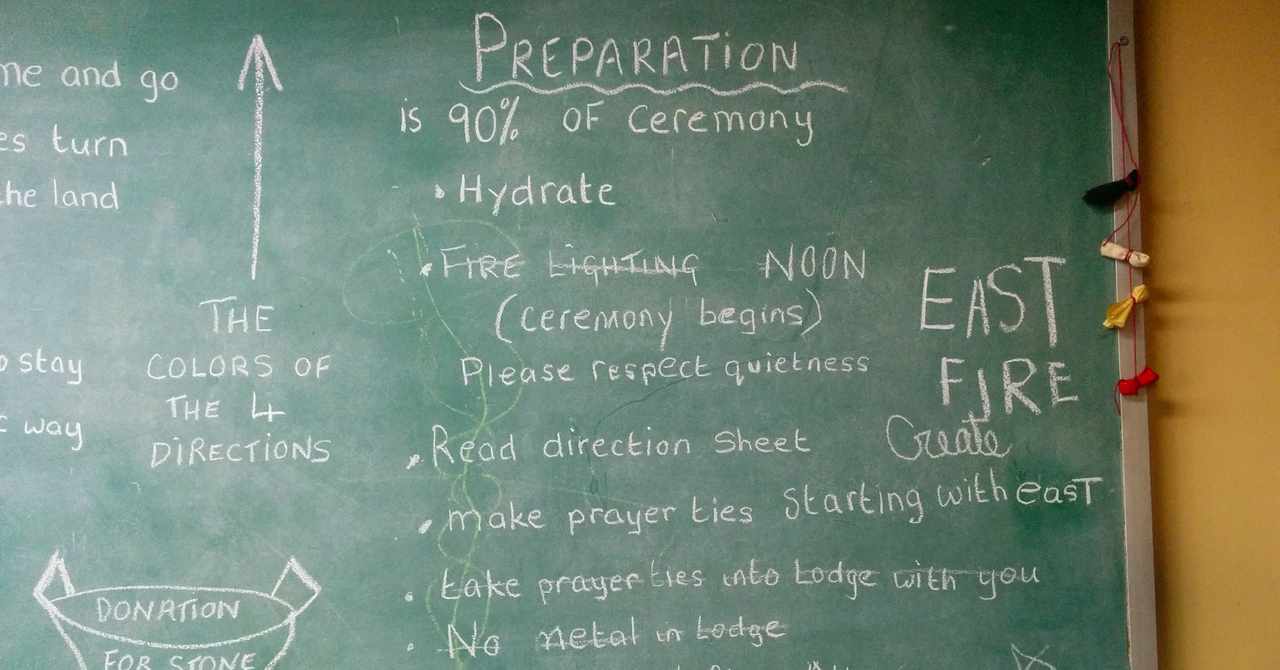 me and go
es turn
he land
THE
COLORS OF
THE 4
DIRECTIONS
stay
way
DONATION
FOR STONE
PREPARATION
is 90% OF Ceremony
• Hydrate
• FIRE LIGHTING NOON
(Ceremony begins)
Please respect quietness
• Read direction Sheet
• make prayer ties Starting with easT
• take prayer ties into Lodge with you
• No metal in Lodge
EAST
FIRE
Create